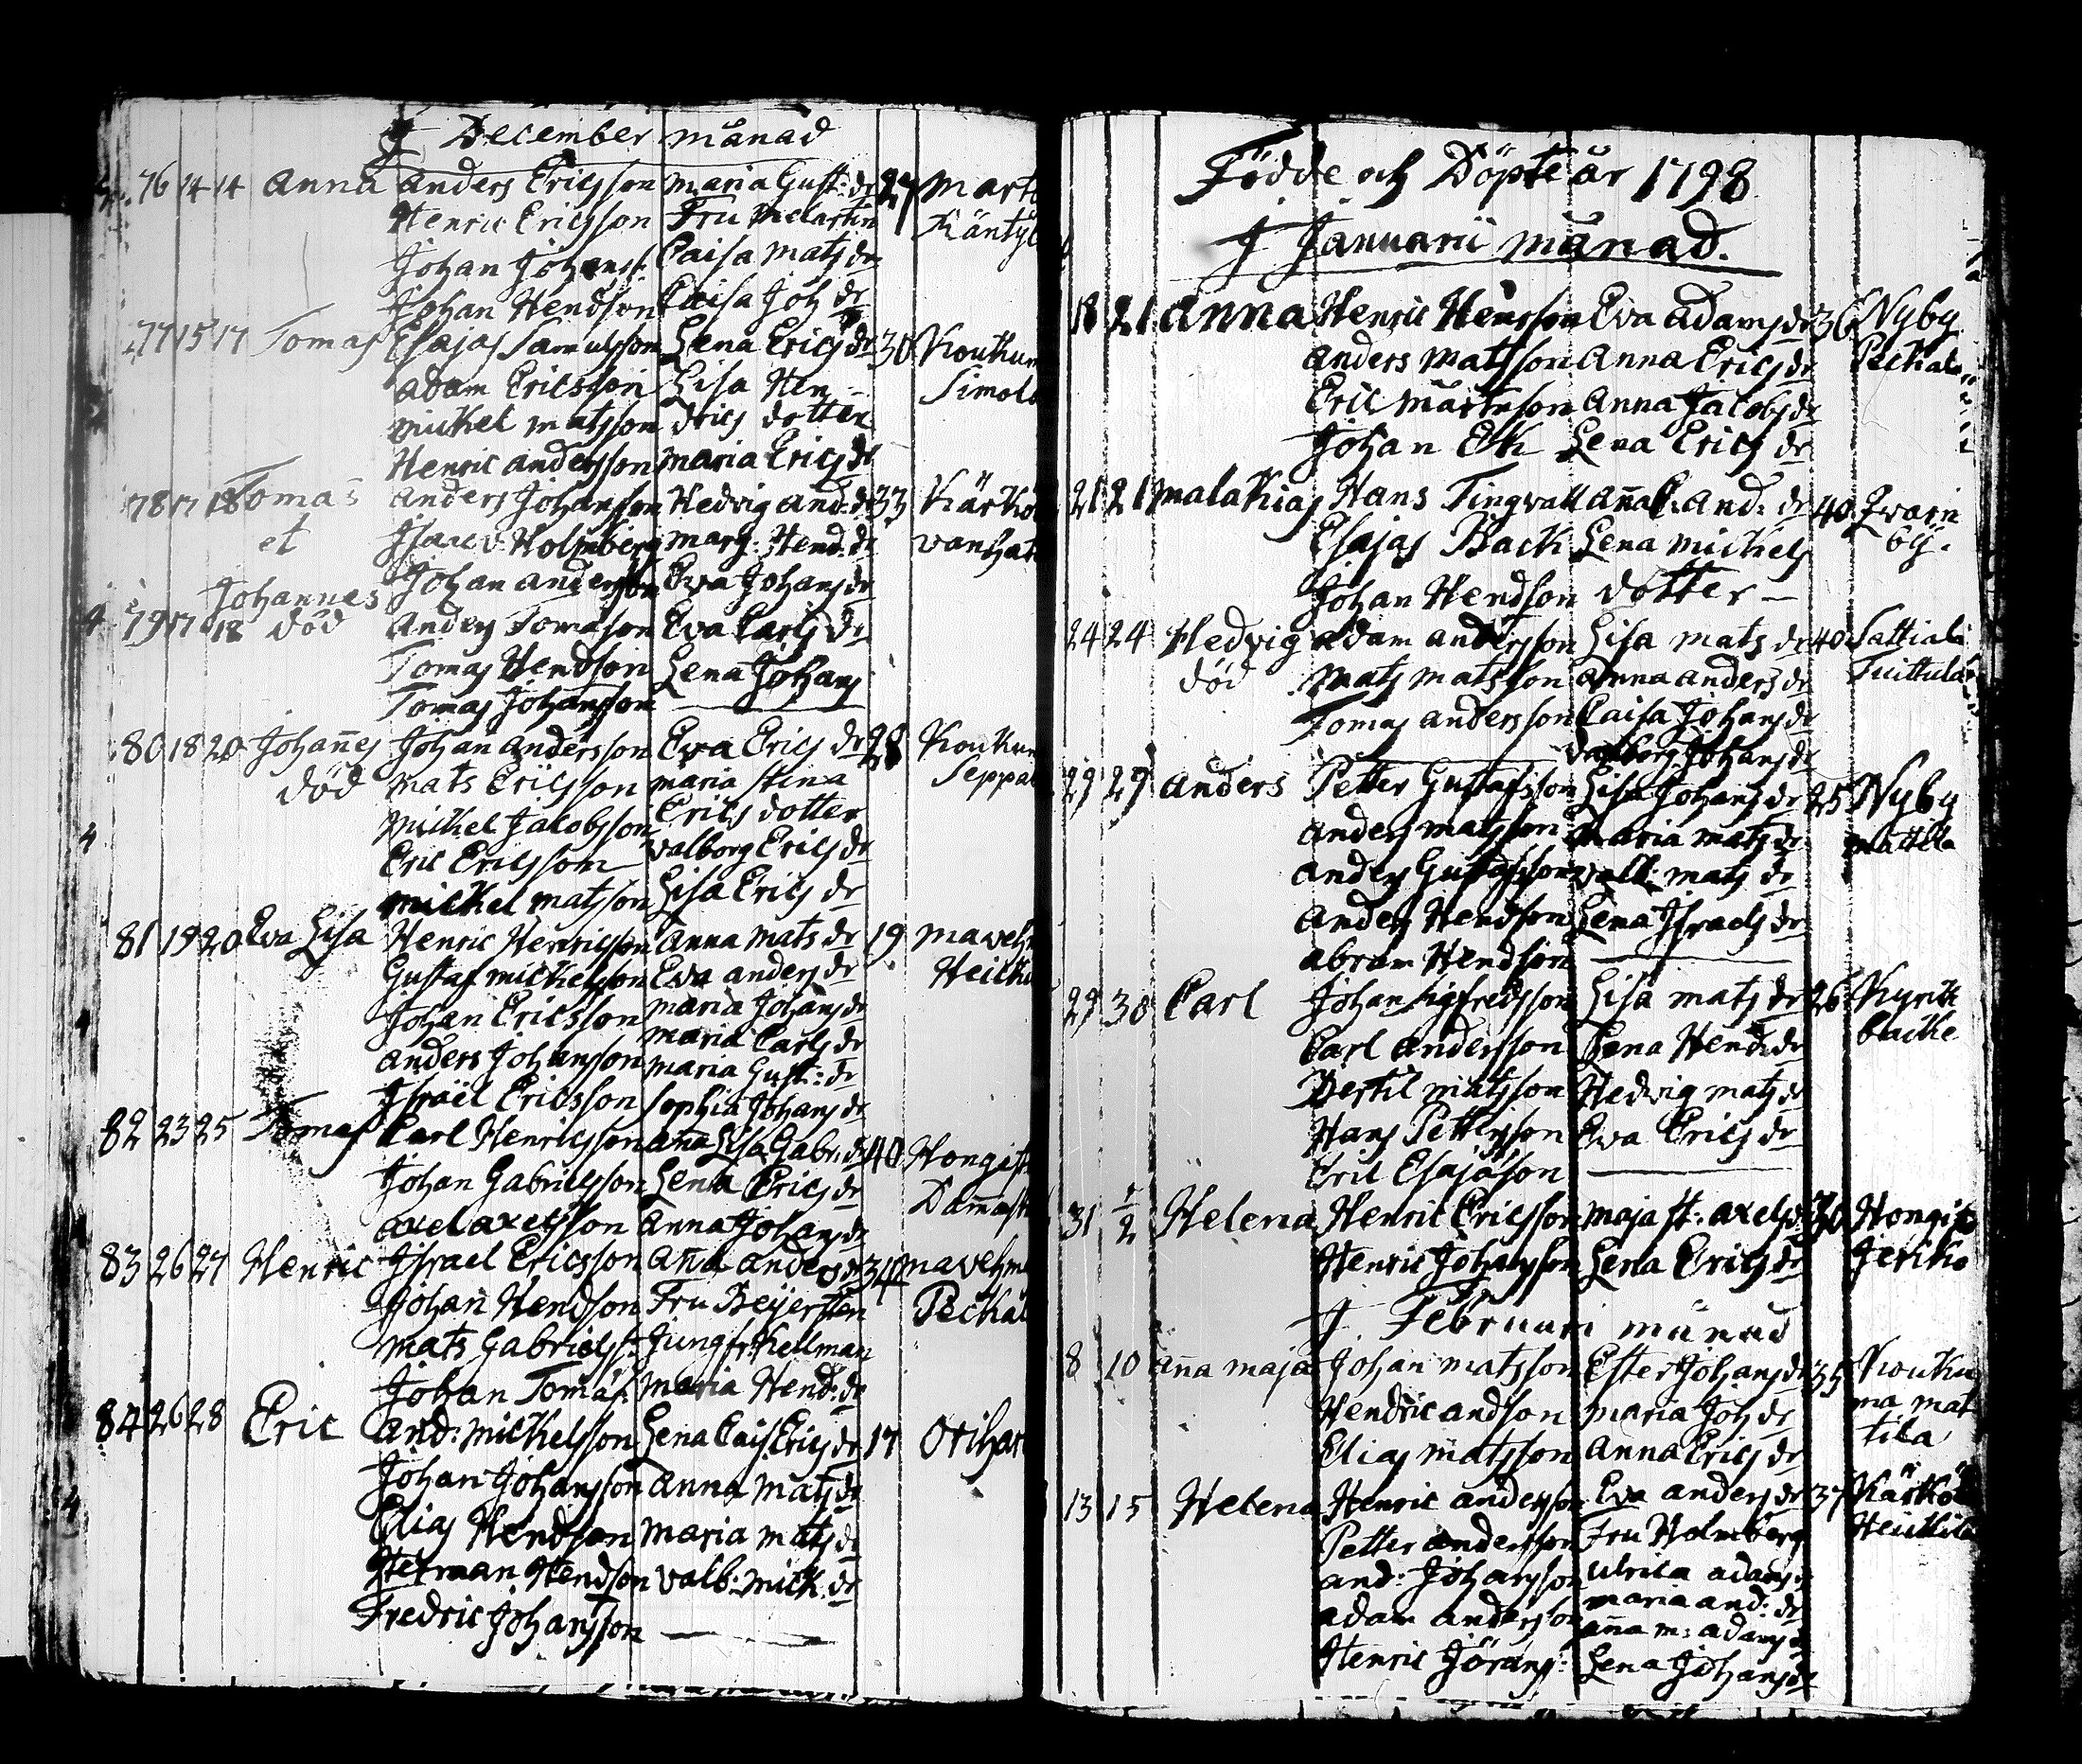 J December månad
76 14 14 Anna Anders Ericsson Maria Gust: dr 27 Mart
Henric Ericsson Fru Melartin Mäntyl
Johan Johanss: Caisa Mats dr
Johan Hendson Caisa Joh dr
77 15 17 Tomas Esajas Samulsson Lena Erics dr 30 Koukun
Adam Ericsson Lisa Hen- Simola
Mickel Matsson drics dotter
Henric Andersson Maria Erics dr
78 17 18 Tomas Anders Johansson Hedvig And: dr 33 Kärko
et Isac v: Holmberg Marg: Hend: dr Vanhat
Johan Andersson Eva Johans dr
Johannes
79 17 18 död Anders Tomasson Eva Carls dr
Tomas Hendson Lena Johans
Tomas Johansson
80 18 20 Johan̄es Johan Andersson Eva Erics dr 28 Koukun
död Mats Ericsson Maria Stina Seppäl
Mickel Jacobsson Erics dotter
Eric Ericsson Valborg Erics dr
Mickel Matsson Lisa Erics dr
81 19 20 Eva Lisa Henric Henricsson Anna Mats dr 19 Mavehm
Gustaf Mickelsson Eva Anders dr Heicki
Johan Ericsson Maria Johans dr
Maria Carls dr
Anders Johansson Maria Gust: dr
Israël Ericsson Sophia Johans dr
82 23 25 Tomas Carl Henricsson An̄a Lisa Gabr: dr 40 Hongist
Johan Gabrielsson Lena Erics dr Dam̄ast
Axel Axelsson Anna Johans dr
83 26 27 Henric Israel Ericsson An̄a Anders dr 34 Mavehm
Johan Hendson Fru Beijersten Peckal
Mats Gabriels: Jungfr: Kellman
Johan Tomas: Maria Hend: dr
84 26 28 Eric And: Mickelsson Lena Cais Erics dr 17 Orihar
Johan Johansson Anna Mats dr
Elias Hendson Maria Mats dr
Herman Hendson Valb: Mick: dr
Fredric Johansson
Födde och Döpte år 1798
J Januarii månad.
18 21 Anna Henric Henrsson Eva Adams dr 36 Nyby
Anders Matsson Anna Erics dr Peckala
Eric Mårtnson Anna Jacobs dr
Johan Ek Lena Erics dr
21 21 Malakias Hans Tingvall An̄a C: And: dr 40 Qvarn
Esajas Back Lena Mickels by.
Johan Hendson dotter
24 24 Hedvig Adam Andersson Lisa Mats dr 40 Sattiala
död Mats Matsson Anna Anders dr Tuittula
Tomas Andersson Caisa Johans dr
Valborg Johans dr
29 29 Anders Petter Gustafsson Lisa Johans dr 25 Nyby
Anders Matsson Maria Mats dr Mattila
Anders Gustafsson Valb: Mats dr
Anders Hendson Lena Israels dr
Abram Hendson
29 30 Carl Johan Sigfredsson Lisa Mats dr 26 Kyrck
Carl Andersson Lena Hend: dr backe
Bertil Matsson Hedvig Mats dr
Hans Pettersson Eva Erics dr
Eric Esajason
31 1/2 Helena Henric Ericsson Maja St: Axels dr 30 Hongisto
Henric Johansson Lena Erics dr Jeriko
J Februari månad
8 10 An̄a Maja Johan Matsson Ester Johans dr 35 Kouku
Hendric Andson Maria Joh dr ma Mat
Elias Matsson Anna Erics dr tila
13 15 Helena Henric Andersson Eva Anders dr 37 Kärkö
Petter Andersson Fru Holmberg Heickilä
And: Johansson Ulrica Adams
Maria And: dr
Adam Andersson An̄a M: Adams dr
Henric Jörans: Lena Johans dr